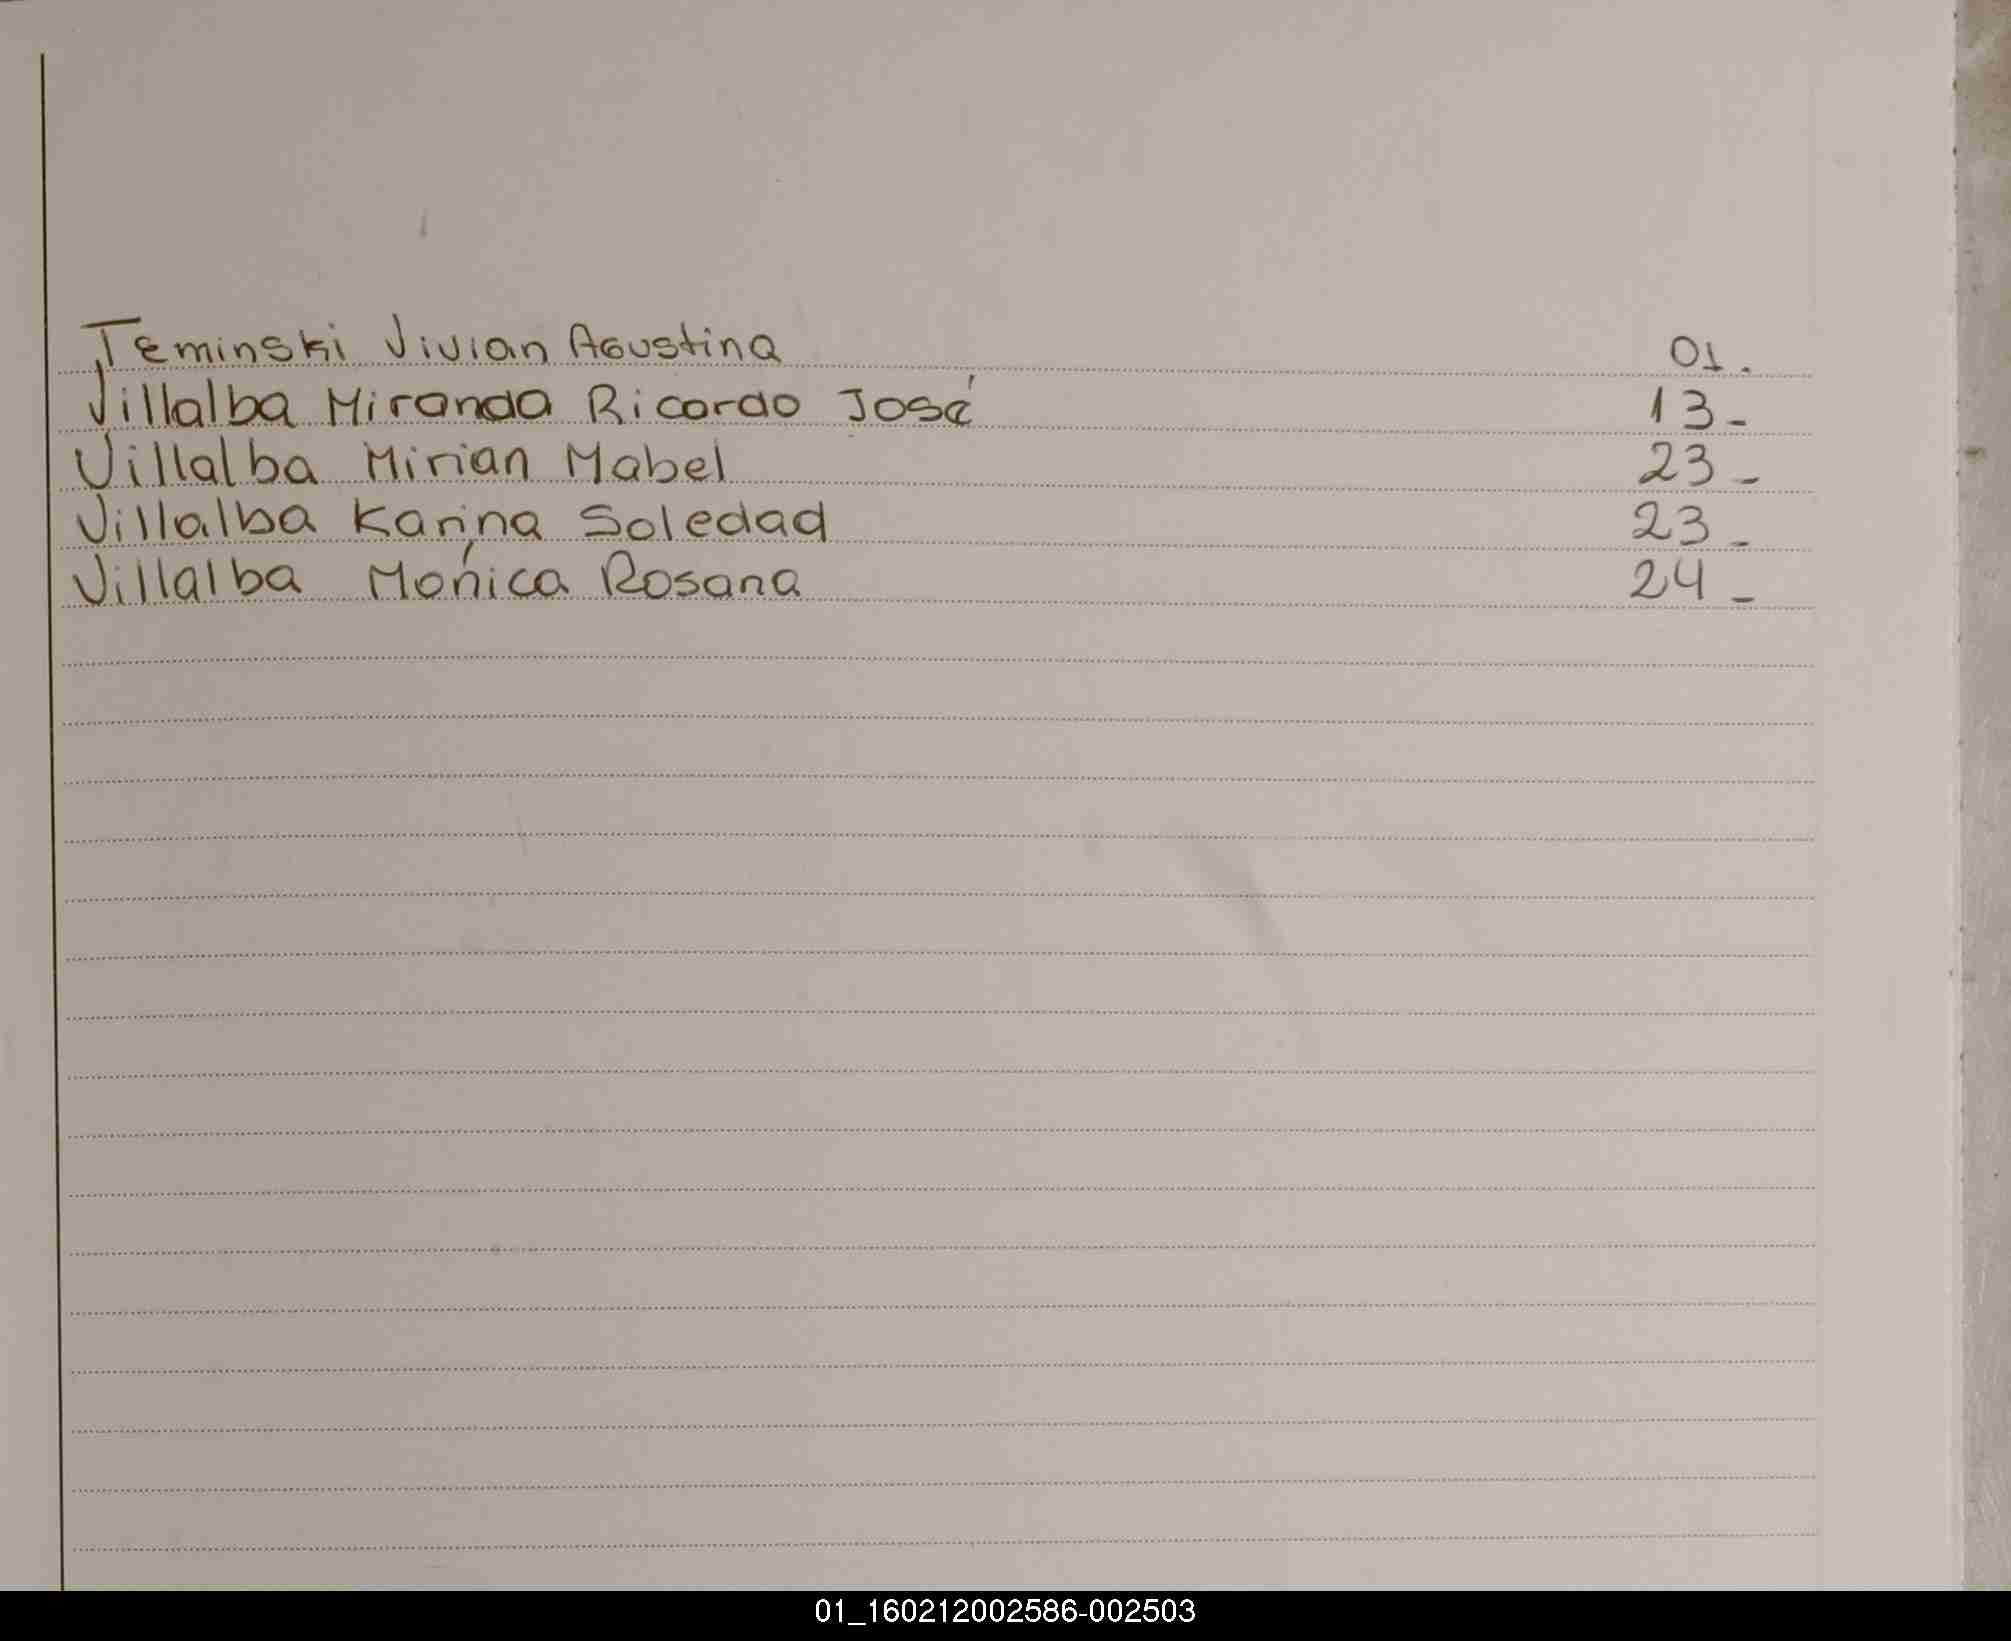 Teminski Vivian Agustina 01.
Villalba Miranda Ricardo José 13-
Villalba Mirian Mabel 23-
Villalba Karina Soledad 23-
Villalba Mónica Rosana 24-
01_160212002586-002503